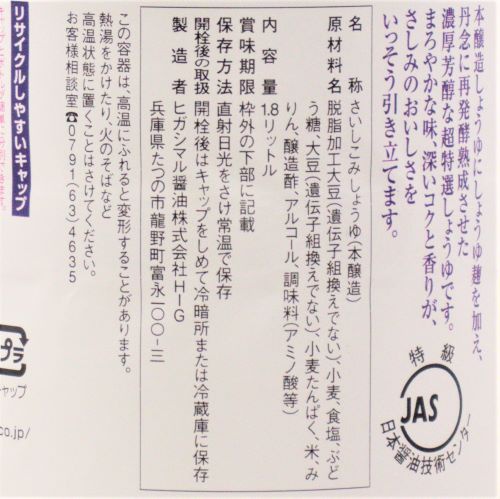 本醸造しょうゆにしょうゆ麹を加え、
丹念に再発酵熟成させた
濃厚芳醇な超特選しょうゆです。
まろやかな味、深いコクと香りが、
さしみのおいしさを
いっそう引き立てます。
特級
JAS
日本醤油技術センター
名称 さいしこみしょうゆ(本醸造)
原材料名 脱脂加工大豆(遺伝子組換えでない)、小麦、食塩、ぶど
う糖、大豆(遺伝子組換えでない)、小麦たんぱく、米、み
りん、醸造酢、アルコール、調味料(アミノ酸等)
内容量 1.8リットル
賞味期限 枠外の下部に記載
保存方法 直射日光をさけ常温で保存
開栓後の取扱 開栓後はキャップをしめて冷暗所または冷蔵庫に保存
製造者 ヒガシマル醤油株式会社HIG
兵庫県たつの市龍野町富永一〇〇-三
この容器は、高温にふれると変形することがあります。
熱湯をかけたり、火のそばなど
高温状態に置くことはさけてください。
お客様相談室☎0791(63)4635
リサイクルしやすいキャップ
プラ
キャップ
co.jp/